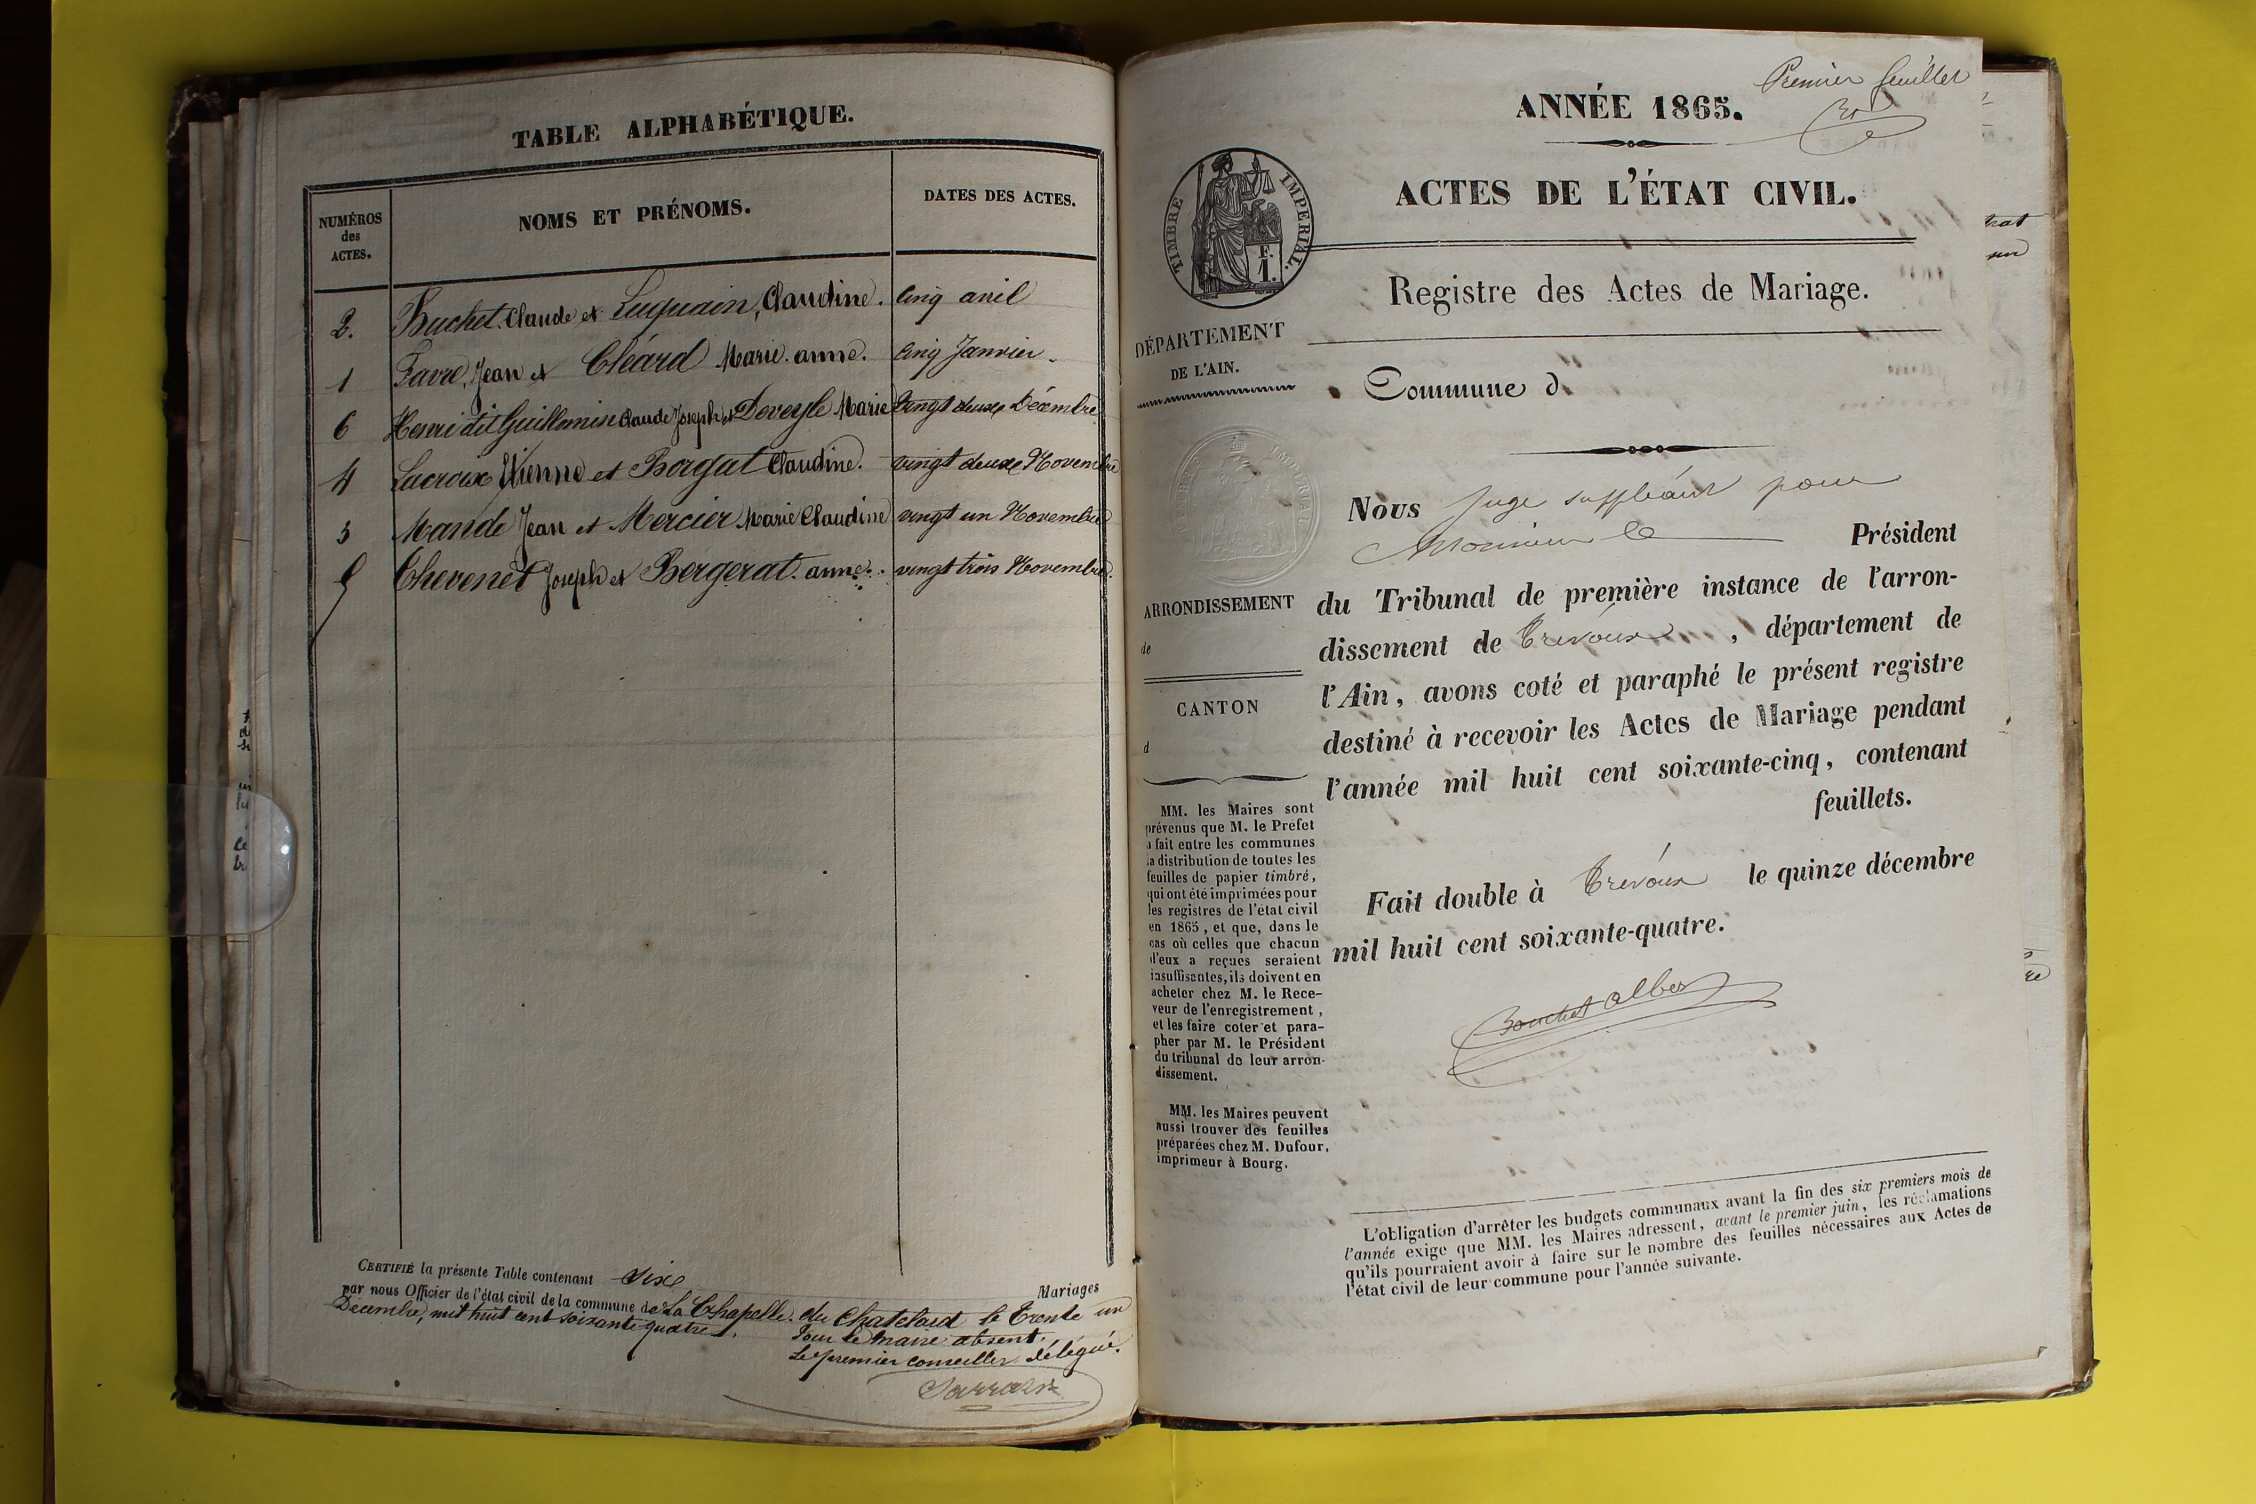 TABLE ALPHABÉTIQUE.
NUMÉROS des ACTES.
NOMS ET PRÉNOMS.
DATES DES ACTES.
2. Buchet Claude et Luquain, Claudine. Cinq avril
1 Favre, Jean et Cléard Marie anne. Cinq Janvier.
6 Henri dit Guillemin Claude Joseph et Deveyle Marie Vingt deux Décembre
4 Lacroix Etienne et Borgat Claudine. vingt deux Novembre
3 Mande Jean et Mercier Marie Claudine vingt un Novembre
5 Thevenet Joseph et Bergerat anne. vingt trois Novembre.
CERTIFIÉ la présente Table contenant Six Mariages
par nous Officier de l'état civil de la commune de La Chapelle du Chatelard le Trente un
Décembre, mil huit cent soixante quatre.
Pour le maire absent.
Le premier conseiller délégué.
Premier feuillet
ANNÉE 1865.
ACTES DE L'ÉTAT CIVIL.
TIMBRE IMPÉRIAL.
F. 1.
Registre des Actes de Mariage.
DÉPARTEMENT
DE L'AIN.
Commune d
Nous Juge suppléant pour
Monsieur le Président
du Tribunal de première instance de l'arron-
dissement de Trévoux, département de
l'Ain, avons coté et paraphé le présent registre
destiné à recevoir les Actes de Mariage pendant
l'année mil huit cent soixante-cinq, contenant
feuillets.
Fait double à Trévoux le quinze décembre
mil huit cent soixante-quatre.
Bouchet Alber
ARRONDISSEMENT
de
CANTON
d
MM. les Maires sont
prévenus que M. le Préfet
a fait entre les communes
la distribution de toutes les
feuilles de papier timbré,
qui ont été imprimées pour
les registres de l'état civil
en 1865, et que, dans le
cas où celles que chacun
d'eux a reçues seraient
insuffisantes, ils doivent en
acheter chez M. le Rece-
veur de l'enregistrement,
et les faire coter et para-
pher par M. le Président
du tribunal de leur arron-
dissement.
MM. les Maires peuvent
aussi trouver des feuilles
préparées chez M. Dufour,
imprimeur à Bourg.
L'obligation d'arrêter les budgets communaux avant la fin des six premiers mois de
l'année exige que MM. les Maires adressent, avant le premier juin, les réclamations
qu'ils pourraient avoir à faire sur le nombre des feuilles nécessaires aux Actes de
l'état civil de leur commune pour l'année suivante.